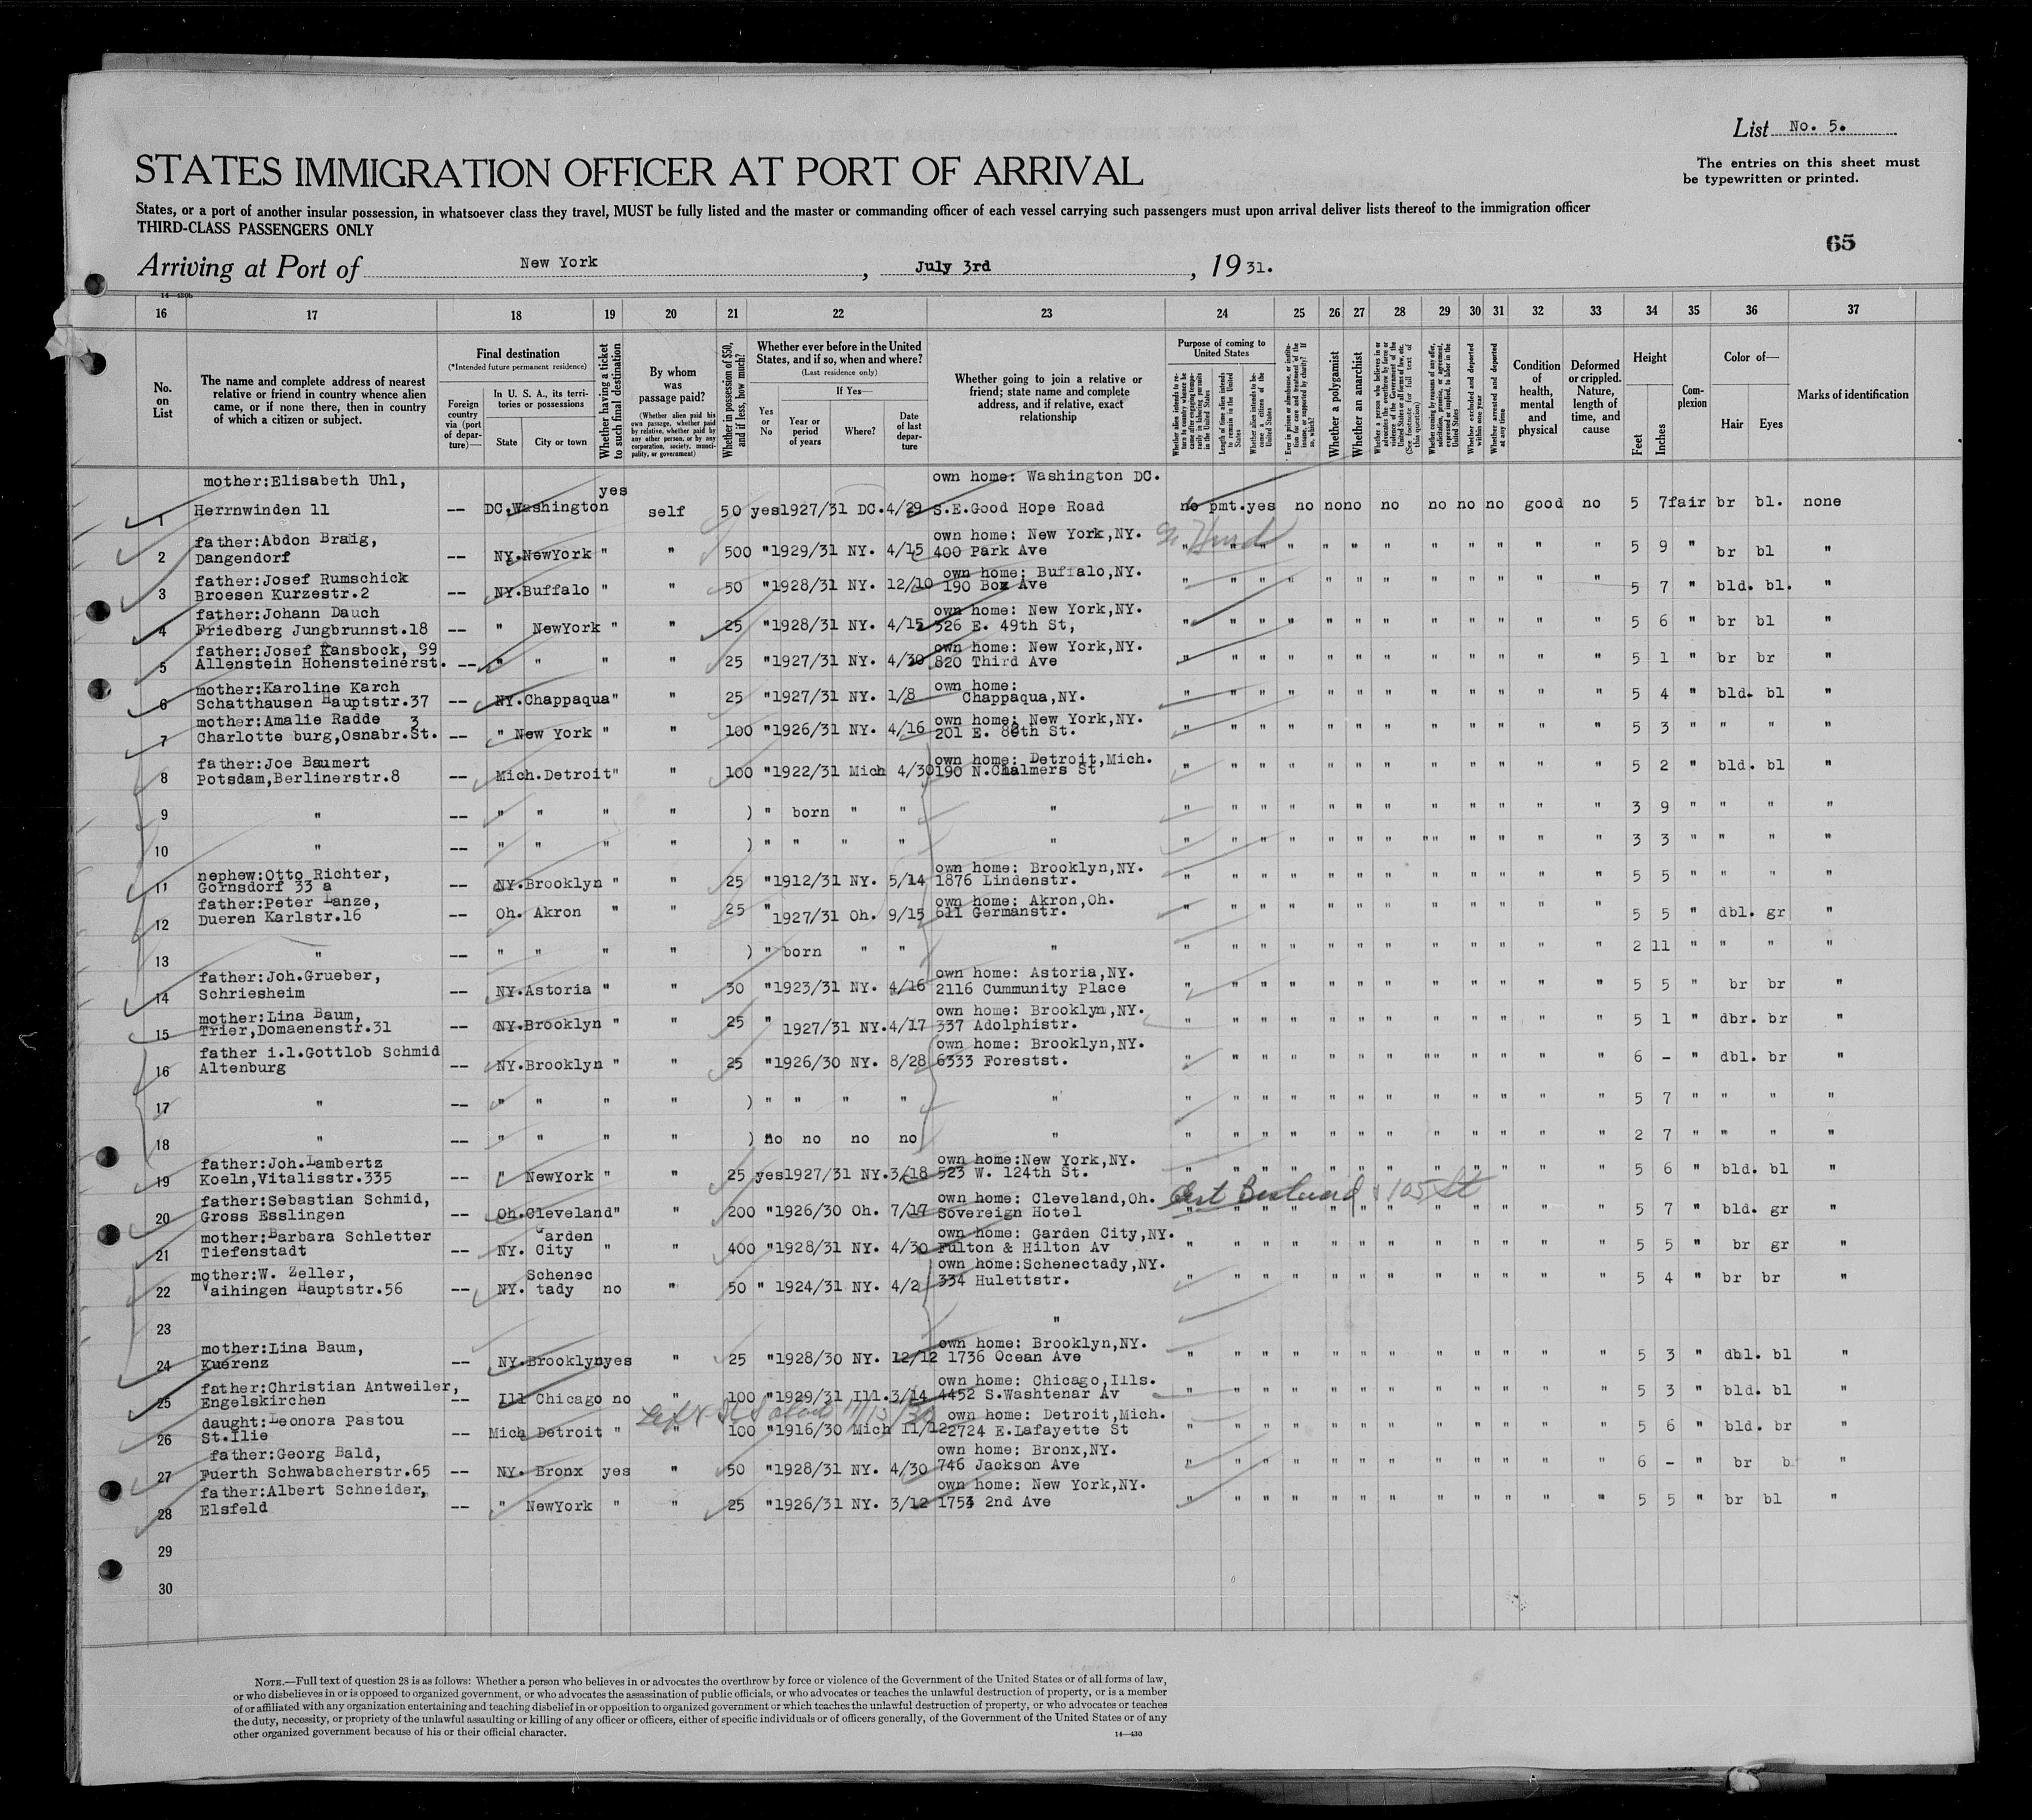 List No. 5.
STATES IMMIGRATION OFFICER AT PORT OF ARRIVAL
The entries on this sheet must
be typewritten or printed.
States, or a port of another insular possession, in whatsoever class they travel, MUST be fully listed and the master or commanding officer of each vessel carrying such passengers must upon arrival deliver lists thereof to the immigration officer
THIRD-CLASS PASSENGERS ONLY
65
Arriving at Port of New York, July 3rd, 1931.
14—430b
16 17 18 19 20 21 22 23 24 25 26 27 28 29 30 31 32 33 34 35 36 37
No. on List
The name and complete address of nearest relative or friend in country whence alien came, or if none there, then in country of which a citizen or subject.
Final destination
(*Intended future permanent residence)
Foreign country via (port of departure)—
In U. S. A., its territories or possessions
State
City or town
Whether having a ticket to such final destination
By whom was passage paid?
(Whether alien paid his own passage, whether paid by relative, whether paid by any other person, or by any corporation, society, municipality, or government)
Whether in possession of $50, and if less, how much?
Whether ever before in the United States, and if so, when and where?
(Last residence only)
Yes or No
If Yes—
Year or period of years
Where?
Date of last departure
Whether going to join a relative or friend; state name and complete address, and if relative, exact relationship
Purpose of coming to United States
Whether alien intends to return to country whence he came after engaging temporarily in laboring pursuits in the United States
Length of time alien intends to remain in the United States
Whether alien intends to become a citizen of the United States
Ever in prison or almshouse, or institution for care and treatment of the insane, or supported by charity? If so, which?
Whether a polygamist
Whether an anarchist
Whether a person who believes in or advocates the overthrow by force or violence of the Government of the United States or all forms of law, etc. (See footnote for full text of this question)
Whether coming by reason of any offer, solicitation, promise, or agreement, expressed or implied, to labor in the United States
Whether excluded and deported within one year
Whether arrested and deported at any time
Condition of health, mental and physical
Deformed or crippled. Nature, length of time, and cause
Height
Feet
Inches
Complexion
Color of—
Hair
Eyes
Marks of identification
mother:Elisabeth Uhl, yes own home: Washington DC.
1 Herrnwinden 11 -- DC.Washington self 50 yes1927/31 DC.4/29 S.E.Good Hope Road no pmt.yes no no no no no no no good no 5 7 fair br bl. none
father:Abdon Braig, own home: New York,NY.
2 Dangendorf -- NY.NewYork " " 500 "1929/31 NY. 4/15 400 Park Ave " " " " " " " " " " " " 5 9 " br bl "
father:Josef Rumschick own home: Buffalo,NY.
3 Broesen Kurzestr.2 -- NY.Buffalo " " 50 "1928/31 NY. 12/10 190 Box Ave " " " " " " " " " " " " 5 7 " bld. bl. "
father:Johann Dauch own home: New York,NY.
4 Friedberg Jungbrunnst.18 -- " NewYork " " 25 "1928/31 NY. 4/15 526 E. 49th St, " " " " " " " " " " " " 5 6 " br bl "
father:Josef Kansbock, 99 own home: New York,NY.
5 Allenstein Hohensteinerst. -- " " " " 25 "1927/31 NY. 4/30 820 Third Ave " " " " " " " " " " " " 5 1 " br br "
mother:Karoline Karch own home:
6 Schatthausen Hauptstr.37 -- NY.Chappaqua" " 25 "1927/31 NY. 1/8 Chappaqua,NY. " " " " " " " " " " " " 5 4 " bld. bl "
mother:Amalie Radde 3 own home: New York,NY.
7 Charlotte burg,Osnabr.St. -- " New York " " 100 "1926/31 NY. 4/16 201 E. 86th St. " " " " " " " " " " " " 5 3 " " " "
father:Joe Baumert own home: Detroit,Mich.
8 Potsdam,Berlinerstr.8 -- Mich.Detroit" " 100 "1922/31 Mich 4/30 190 N.Chalmers St " " " " " " " " " " " " 5 2 " bld. bl "
9 " -- " " " " ) " born " " " " " " " " " " " " " " " " 3 9 " " " "
10 " -- " " " " ) " " " " " " " " " " " " " " " " " " 3 3 " " " "
nephew:Otto Richter, own home: Brooklyn,NY.
11 Gornsdorf 33 a -- NY.Brooklyn " " 25 "1912/31 NY. 5/14 1876 Lindenstr. " " " " " " " " " " " " 5 5 " " " "
father:Peter Lanze, own home: Akron,Oh.
12 Dueren Karlstr.16 -- Oh. Akron " " 25 "1927/31 Oh. 9/15 611 Germanstr. " " " " " " " " " " " " 5 5 " dbl. gr "
13 " -- " " " " ) " born " " " " " " " " " " " " " " " 2 11 " " " "
father:Joh.Grueber, own home: Astoria,NY.
14 Schriesheim -- NY.Astoria " " 30 "1923/31 NY. 4/16 2116 Cummunity Place " " " " " " " " " " " " 5 5 " br br "
mother:Lina Baum, own home: Brooklyn,NY.
15 Trier,Domaenenstr.31 -- NY.Brooklyn " " 25 " 1927/31 NY.4/17 337 Adolphistr. " " " " " " " " " " " " 5 1 " dbr. br "
father i.l.Gottlob Schmid own home: Brooklyn,NY.
16 Altenburg -- NY.Brooklyn " " 25 "1926/30 NY. 8/28 6333 Forestst. " " " " " " " " " " " " 6 - " dbl. br "
17 " -- " " " " ) " " " " " " " " " " " " " " " " " 5 7 " " " "
18 " -- " " " " ) no no no no " " " " " " " " " " " " " 2 7 " " " "
father:Joh.Lambertz own home:New York,NY.
19 Koeln,Vitalisstr.335 -- " NewYork " " 25 yes1927/31 NY.3/18 523 W. 124th St. " " " " " " " " " " " " 5 6 " bld. bl "
father:Sebastian Schmid, own home: Cleveland,Oh. 105 St
20 Gross Esslingen -- Oh.Cleveland" " 200 "1926/30 Oh. 7/17 Sovereign Hotel " " " " " " " " " " " " 5 7 " bld. gr "
mother:Barbara Schletter Garden own home: Garden City,NY.
21 Tiefenstadt -- NY. City " " 400 "1928/31 NY. 4/30 Fulton & Hilton Av " " " " " " " " " " " " 5 5 " br gr "
mother:W. Zeller, Schenec own home:Schenectady,NY.
22 Vaihingen Hauptstr.56 -- NY. tady no " 50 " 1924/31 NY. 4/2 334 Hulettstr. " " " " " " " " " " " " 5 4 " br br "
23 "
mother:Lina Baum, own home: Brooklyn,NY.
24 Kuerenz -- NY.Brooklynyes " 25 "1928/30 NY. 12/12 1736 Ocean Ave " " " " " " " " " " " " 5 3 " dbl. bl "
father:Christian Antweiler, own home: Chicago,Ills.
25 Engelskirchen -- Ill Chicago no " 100 "1929/31 Ill.3/14 4452 S.Washtenar Av " " " " " " " " " " " " 5 3 " bld. bl "
daught:Leonora Pastou own home: Detroit,Mich.
26 St.Ilie -- Mich Detroit " " 100 "1916/30 Mich 11/12 2724 E.Lafayette St " " " " " " " " " " " " 5 6 " bld. br "
father:Georg Bald, own home: Bronx,NY.
27 Fuerth Schwabacherstr.65 -- NY. Bronx yes " 50 "1928/31 NY. 4/30 746 Jackson Ave " " " " " " " " " " " " 6 - " br b "
father:Albert Schneider, own home: New York,NY.
28 Elsfeld -- " NewYork " " 25 "1926/31 NY. 3/12 1753 2nd Ave " " " " " " " " " " " " 5 5 " br bl "
29
30
NOTE.—Full text of question 28 is as follows: Whether a person who believes in or advocates the overthrow by force or violence of the Government of the United States or of all forms of law,
or who disbelieves in or is opposed to organized government, or who advocates the assassination of public officials, or who advocates or teaches the unlawful destruction of property, or is a member
of or affiliated with any organization entertaining and teaching disbelief in or opposition to organized government or which teaches the unlawful destruction of property, or who advocates or teaches
the duty, necessity, or propriety of the unlawful assaulting or killing of any officer or officers, either of specific individuals or of officers generally, of the Government of the United States or of any
other organized government because of his or their official character.
14—430